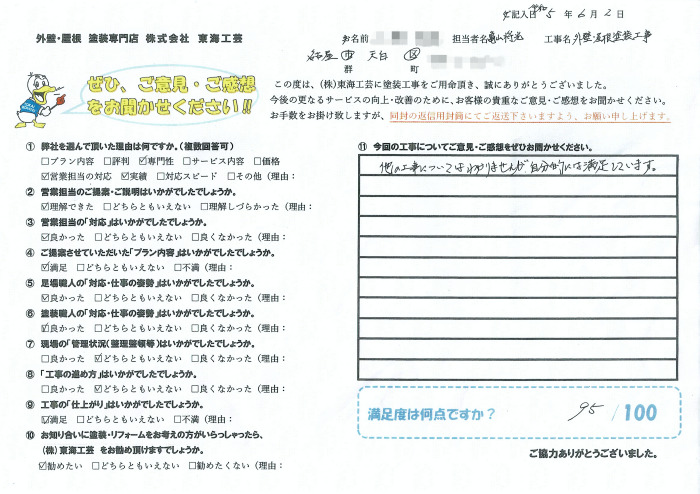 ご記入日 令和5年6月2日
外壁・屋根 塗装専門店 株式会社 東海工芸
お名前 担当者名 亀山将光 工事名 外壁・屋根塗装工事
名古屋 市 天白 区
郡 町
ぜひ、ご意見・ご感想
をお聞かせください!!
この度は、(株)東海工芸に塗装工事をご用命頂き、誠にありがとうございました。
今後の更なるサービスの向上・改善のために、お客様の貴重なご意見・ご感想をお聞かせください。
お手数をお掛け致しますが、同封の返信用封筒にてご返送下さいますよう、お願い申し上げます。
① 弊社を選んで頂いた理由は何ですか。(複数回答可)
□プラン内容 □評判 ☑専門性 □サービス内容 □価格
☑営業担当の対応 ☑実績 □対応スピード □その他(理由:
② 営業担当のご提案・ご説明はいかがでしたでしょうか。
☑理解できた □どちらともいえない □理解しづらかった(理由:
③ 営業担当の「対応」はいかがでしたでしょうか。
☑良かった □どちらともいえない □良くなかった(理由:
④ ご提案させていただいた「プラン内容」はいかがでしたでしょうか。
☑満足 □どちらともいえない □不満(理由:
⑤ 足場職人の「対応・仕事の姿勢」はいかがでしたでしょうか。
☑良かった □どちらともいえない □良くなかった(理由:
⑥ 塗装職人の「対応・仕事の姿勢」はいかがでしたでしょうか。
☑良かった □どちらともいえない □良くなかった(理由:
⑦ 現場の「管理状況(整理整頓等)」はいかがでしたでしょうか。
□良かった ☑どちらともいえない □良くなかった(理由:
⑧ 「工事の進め方」はいかがでしたでしょうか。
☑良かった □どちらともいえない □良くなかった(理由:
⑨ 工事の「仕上がり」はいかがでしたでしょうか。
☑満足 □どちらともいえない □不満(理由:
⑩ お知り合いに塗装・リフォームをお考えの方がいらっしゃったら、
(株)東海工芸 をお勧め頂けますでしょうか。
☑勧めたい □どちらともいえない □勧めたくない(理由:
⑪ 今回の工事についてご意見・ご感想をぜひお聞かせください。
他の工事についてはわかりませんが、自分的には満足しています。
満足度は何点ですか? 95/100
ご協力ありがとうございました。